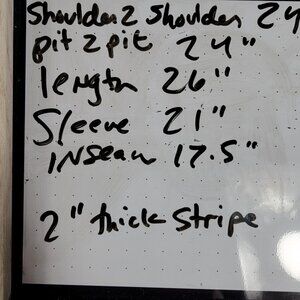 Shoulder 2 Shoulder 24
pit 2 pit 24"
length 26"
Sleeve 21"
INSeam 17.5"
2" thick Stripe